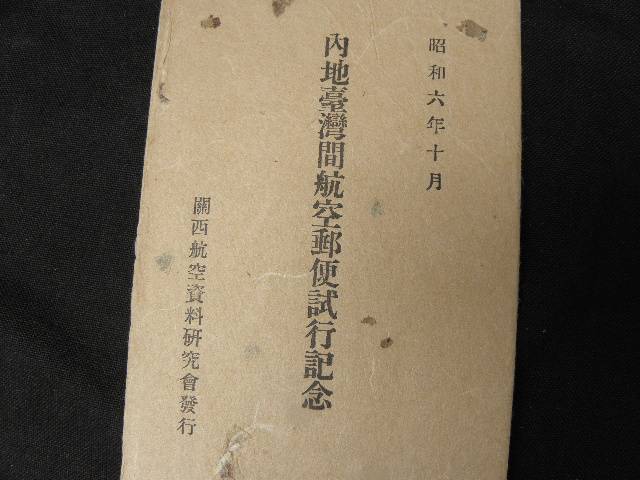 昭和六年十月
內地臺灣間航空郵便試行記念
關西航空資料硏究會發行